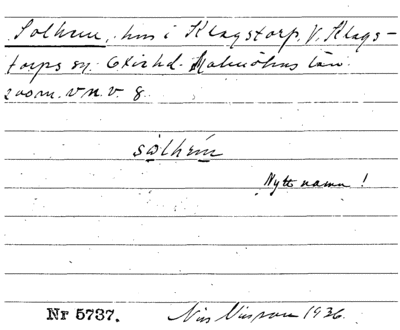 Solhem, hus i Klagstorp, V. Klags-
torps sn. Oxie hd. Malmöhus län.
200 m. v n. v. 8.
sólhém
Nytt namn!
Nr 5737. Nils Nilsson 1936.